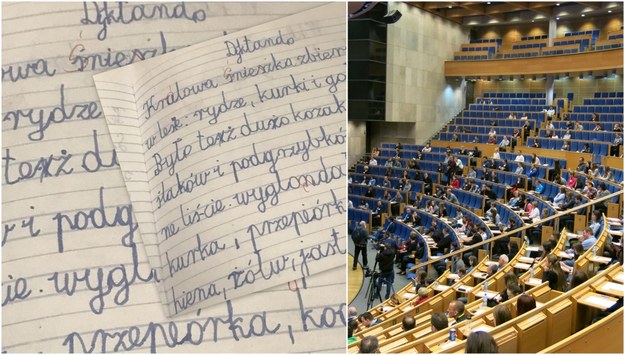 Dyktando
owa Śnieszk
rydze
texż du
w i podg
ie. wygl
przepeórka, ko
Dyktando
Królowa Śnieszka zbier
w leśe: rydze, kurki i go
Było texż dużo kozak
ślaków i podgszybkó
ne liście. wyglonda
kurka, przepeórk
hiena, żółw, jast